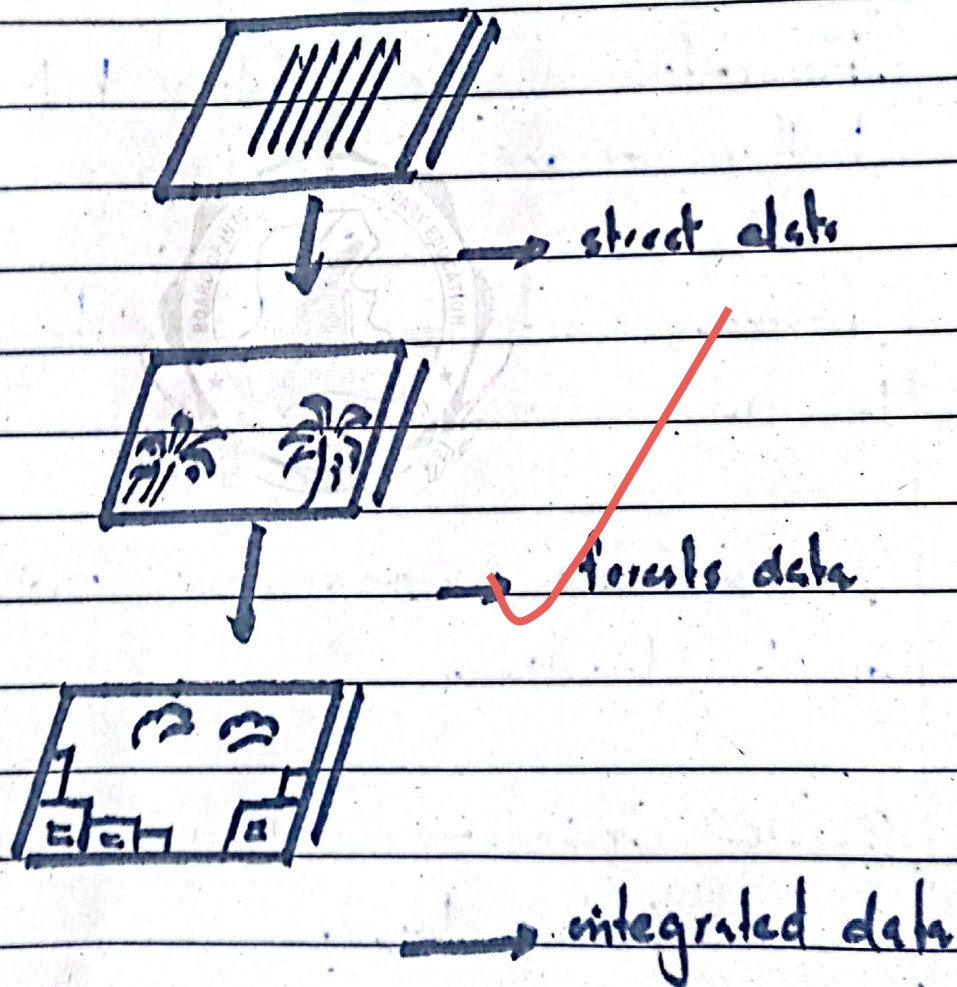 street data
forests data
integrated data